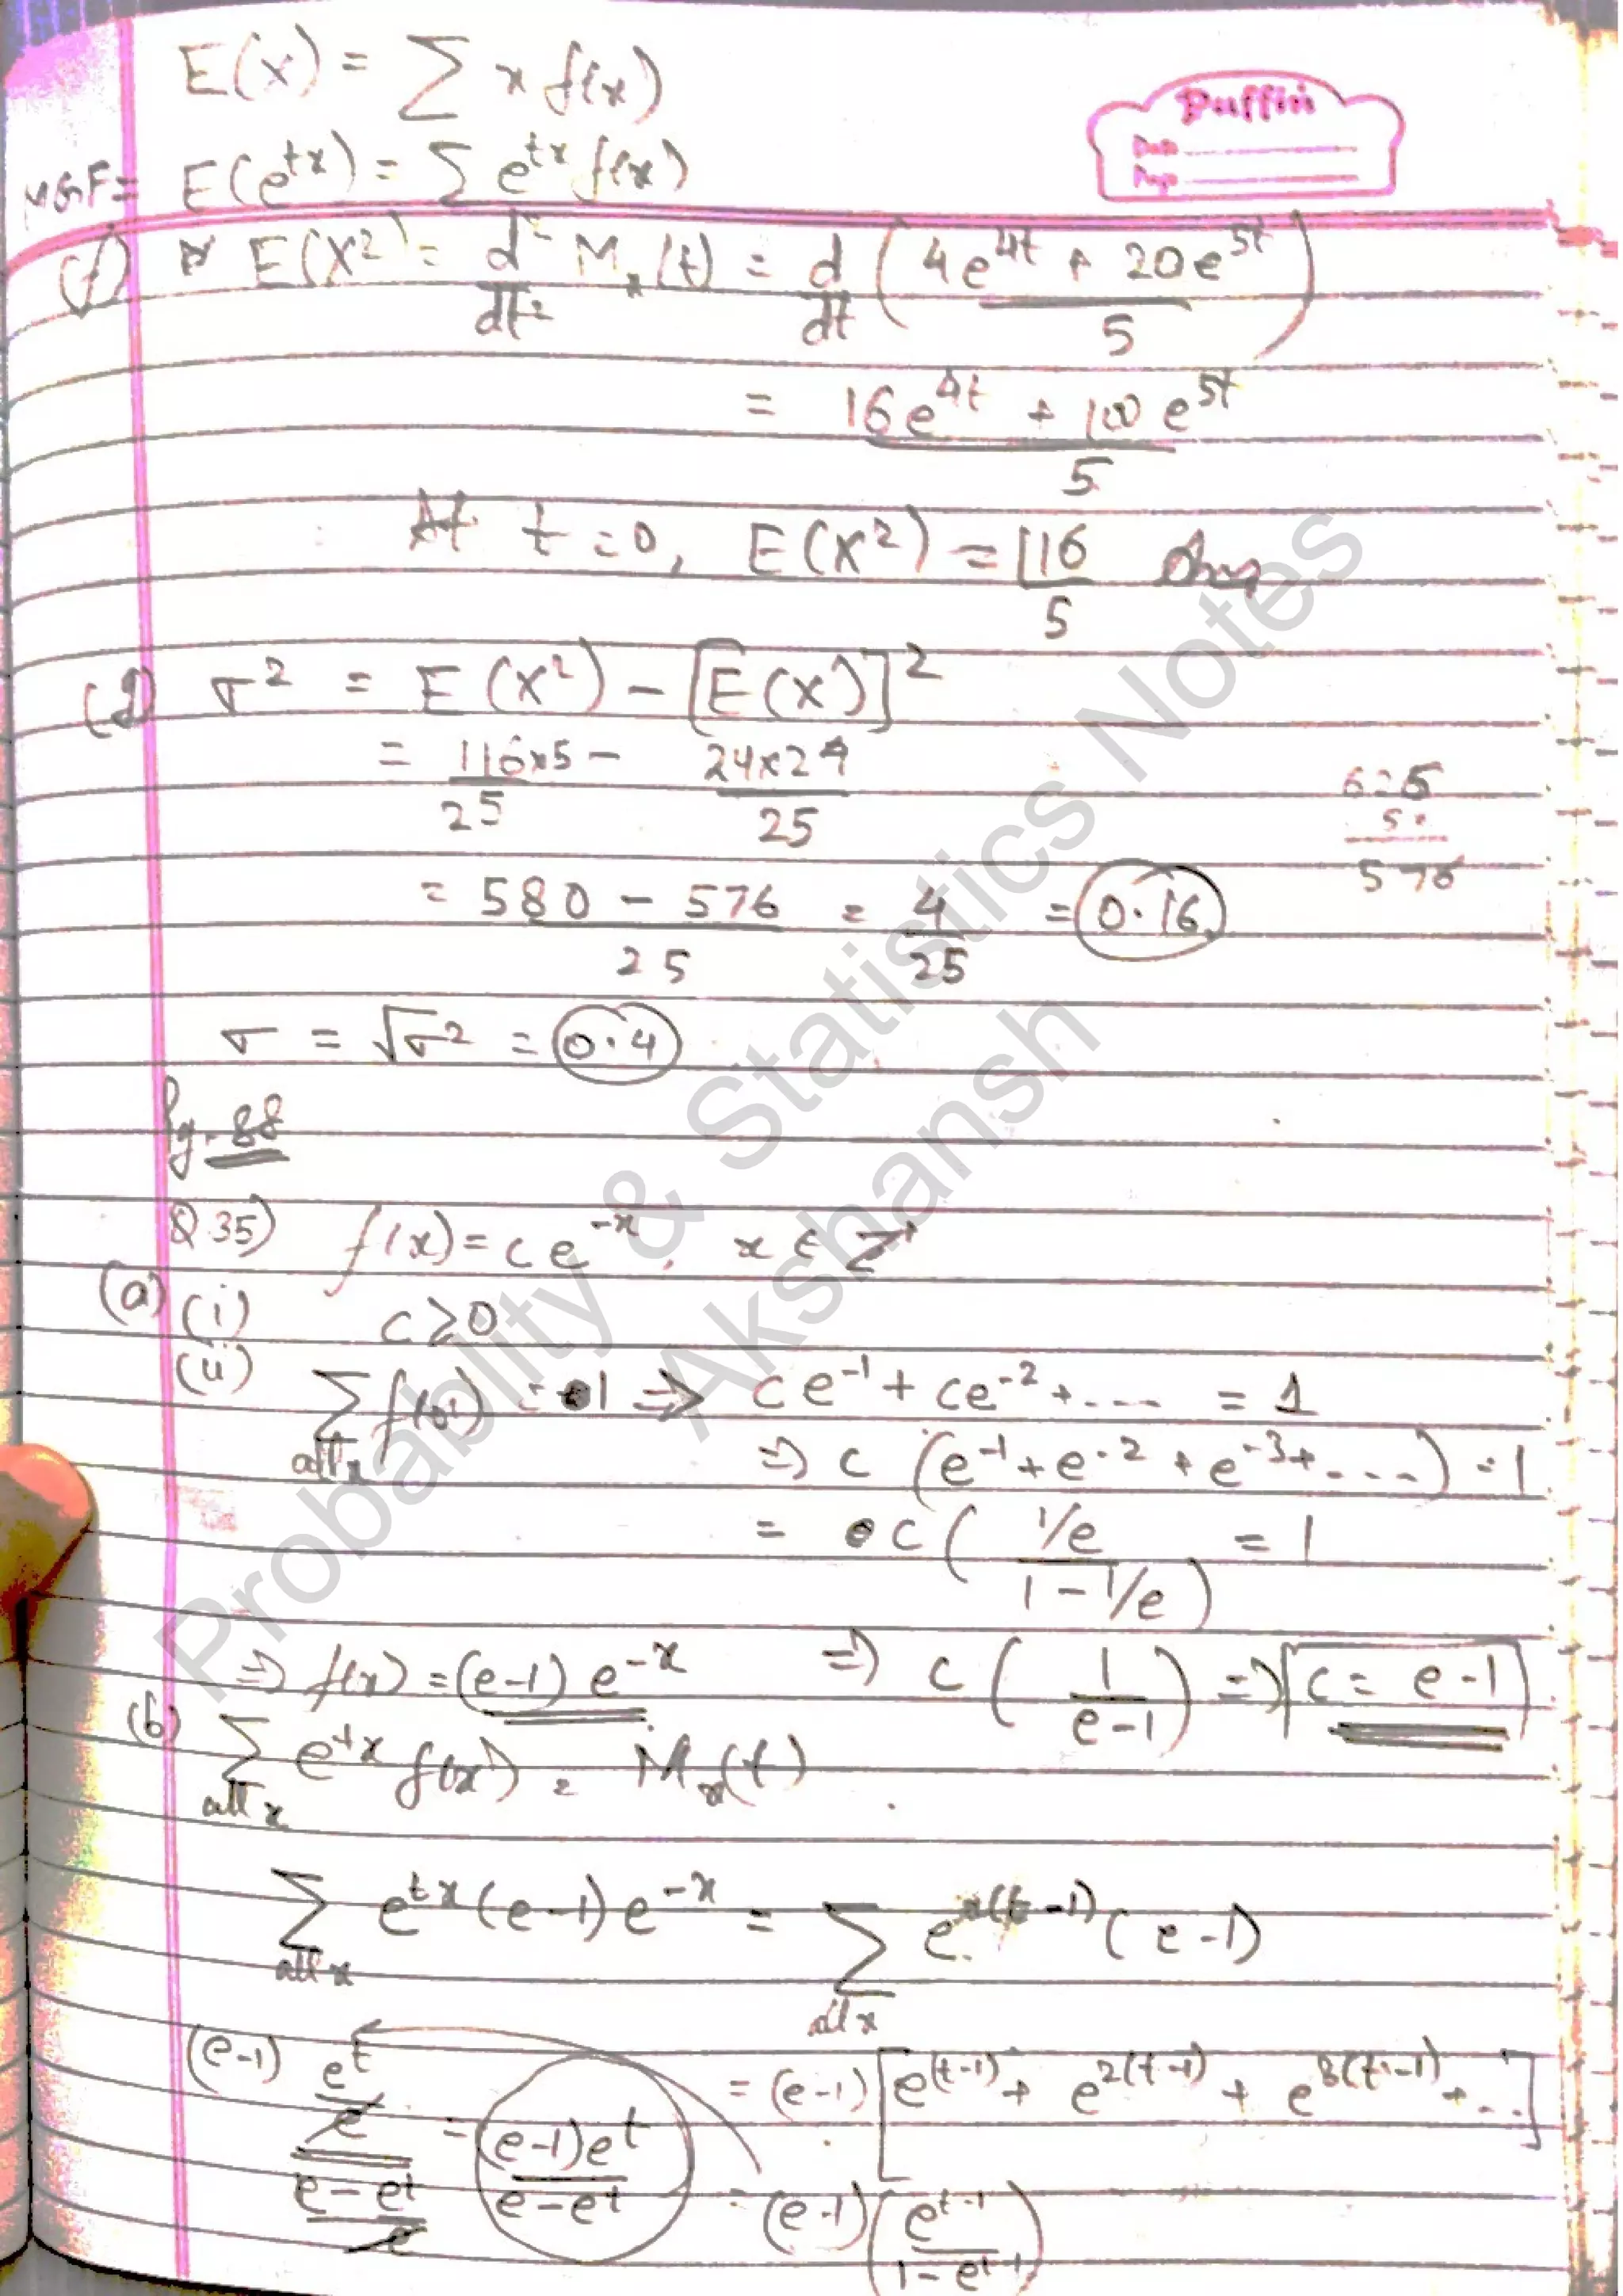 E(x) = ∑ x f(x)
MGF = E(e^{tx}) = ∑ e^{tx} f(x)
Puffin
Date
Page
(f) E(X²) = d²/dt² Mₓ(t) = d/dt ( (4e^{4t} + 20e^{5t}) / 5 )
= (16e^{4t} + 100e^{5t}) / 5
At t=0, E(X²) = 116/5 Ans
σ² = E(X²) - [E(X)]²
= 116×5/25 - 24×24/25
= (580 - 576)/25 = 4/25 = 0.16
576
σ = √σ² = 0.4
Pg-88
Q.35) f(x) = ce^{-x}, x ∈ Z⁺
(a) (i) c ≥ 0
(ii) ∑_{all x} f(x) = 1 ⇒ ce^{-1} + ce^{-2} + .... = 1
⇒ c (e^{-1} + e^{-2} + e^{-3} + ....) = 1
= c ( (1/e) / (1 - 1/e) ) = 1
⇒ f(x) = (e-1) e^{-x} ⇒ c ( 1/(e-1) ) ⇒ c = e-1
(b) ∑_{all x} e^{tx} f(x) = Mₓ(t)
∑_{all x} e^{tx} (e-1) e^{-x} = ∑_{all x} e^{x(t-1)} (e-1)
= (e-1) [e^{(t-1)} + e^{2(t-1)} + e^{3(t-1)} + ..]
= (e-1) ( e^{t-1} / (1 - e^{t-1}) )
(e-1) (e^t/e) / ((e - e^t)/e) = (e-1)e^t / (e - e^t)
Probablity & Statistics Notes
Akshansh